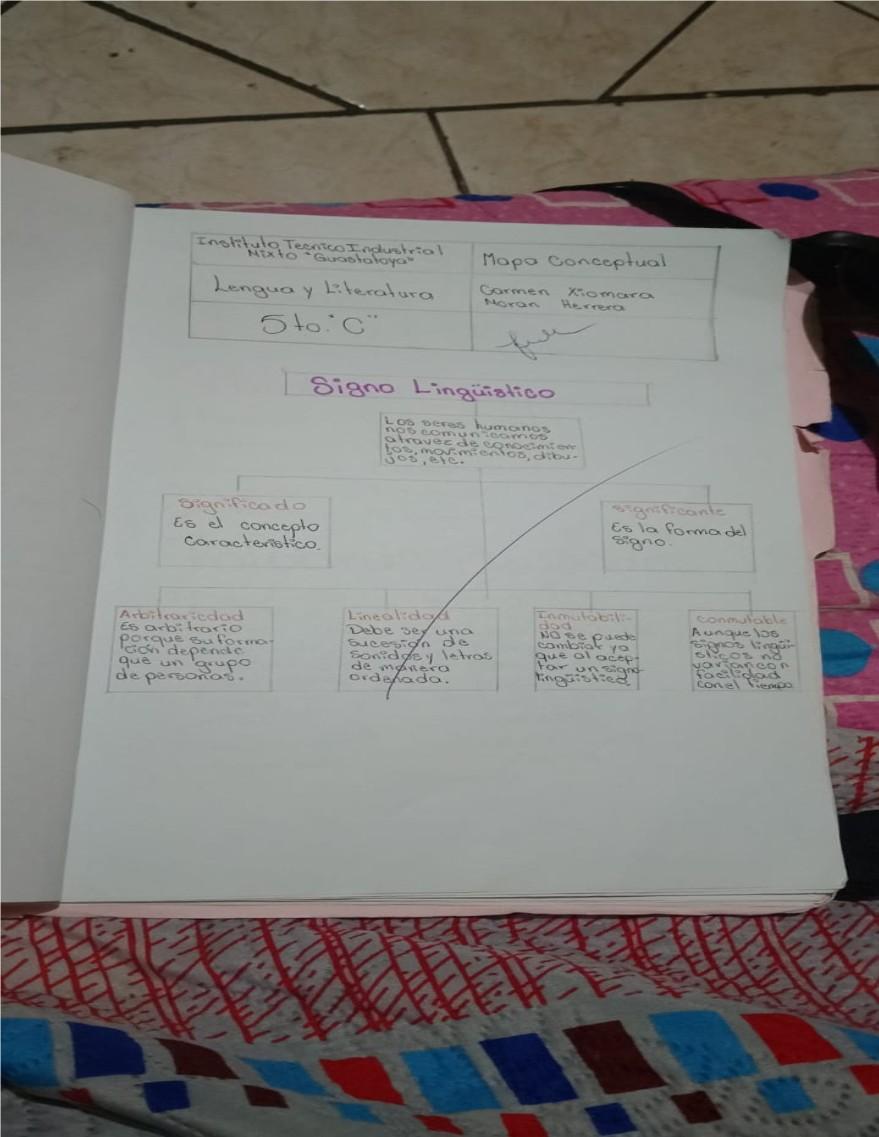 Instituto Tecnico Industrial
Mixto "Guastatoya"
Mapa Conceptual
Lengua y Literatura
Carmen Xiomara
Moran Herrera
5to. "C"
Signo Lingüistico
Los seres humanos
nos comunicamos
atravez de conocimien
tos, movimientos, dibu-
jos, etc.
Significado
Es el concepto
caracteristico.
Significante
Es la forma del
signo.
Arbitrariedad
Es arbitrario
porque su forma-
ción depende
que un grupo
de personas.
Linealidad
Debe ser una
sucesión de
sonidos y letras
de manera
ordenada.
Inmutabili-
dad
No se puede
cambiar ya
que al acep-
tar un signo
lingüistico
conmutable
Aunque los
signos lingüi-
sticos no
varian con
facilidad
con el tiempo